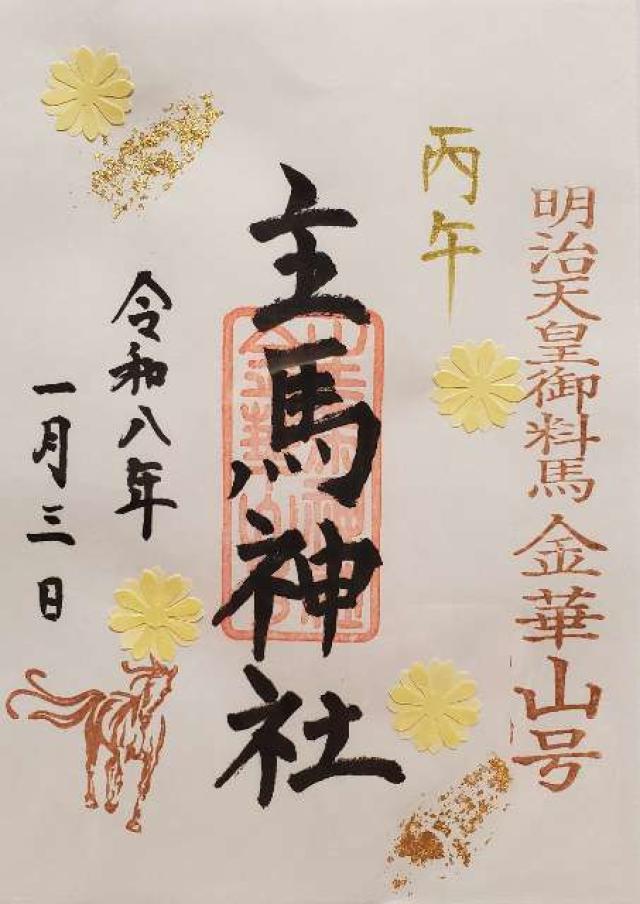 明治天皇御料馬金華山号
丙午
主馬神社
令和八年
一月三日